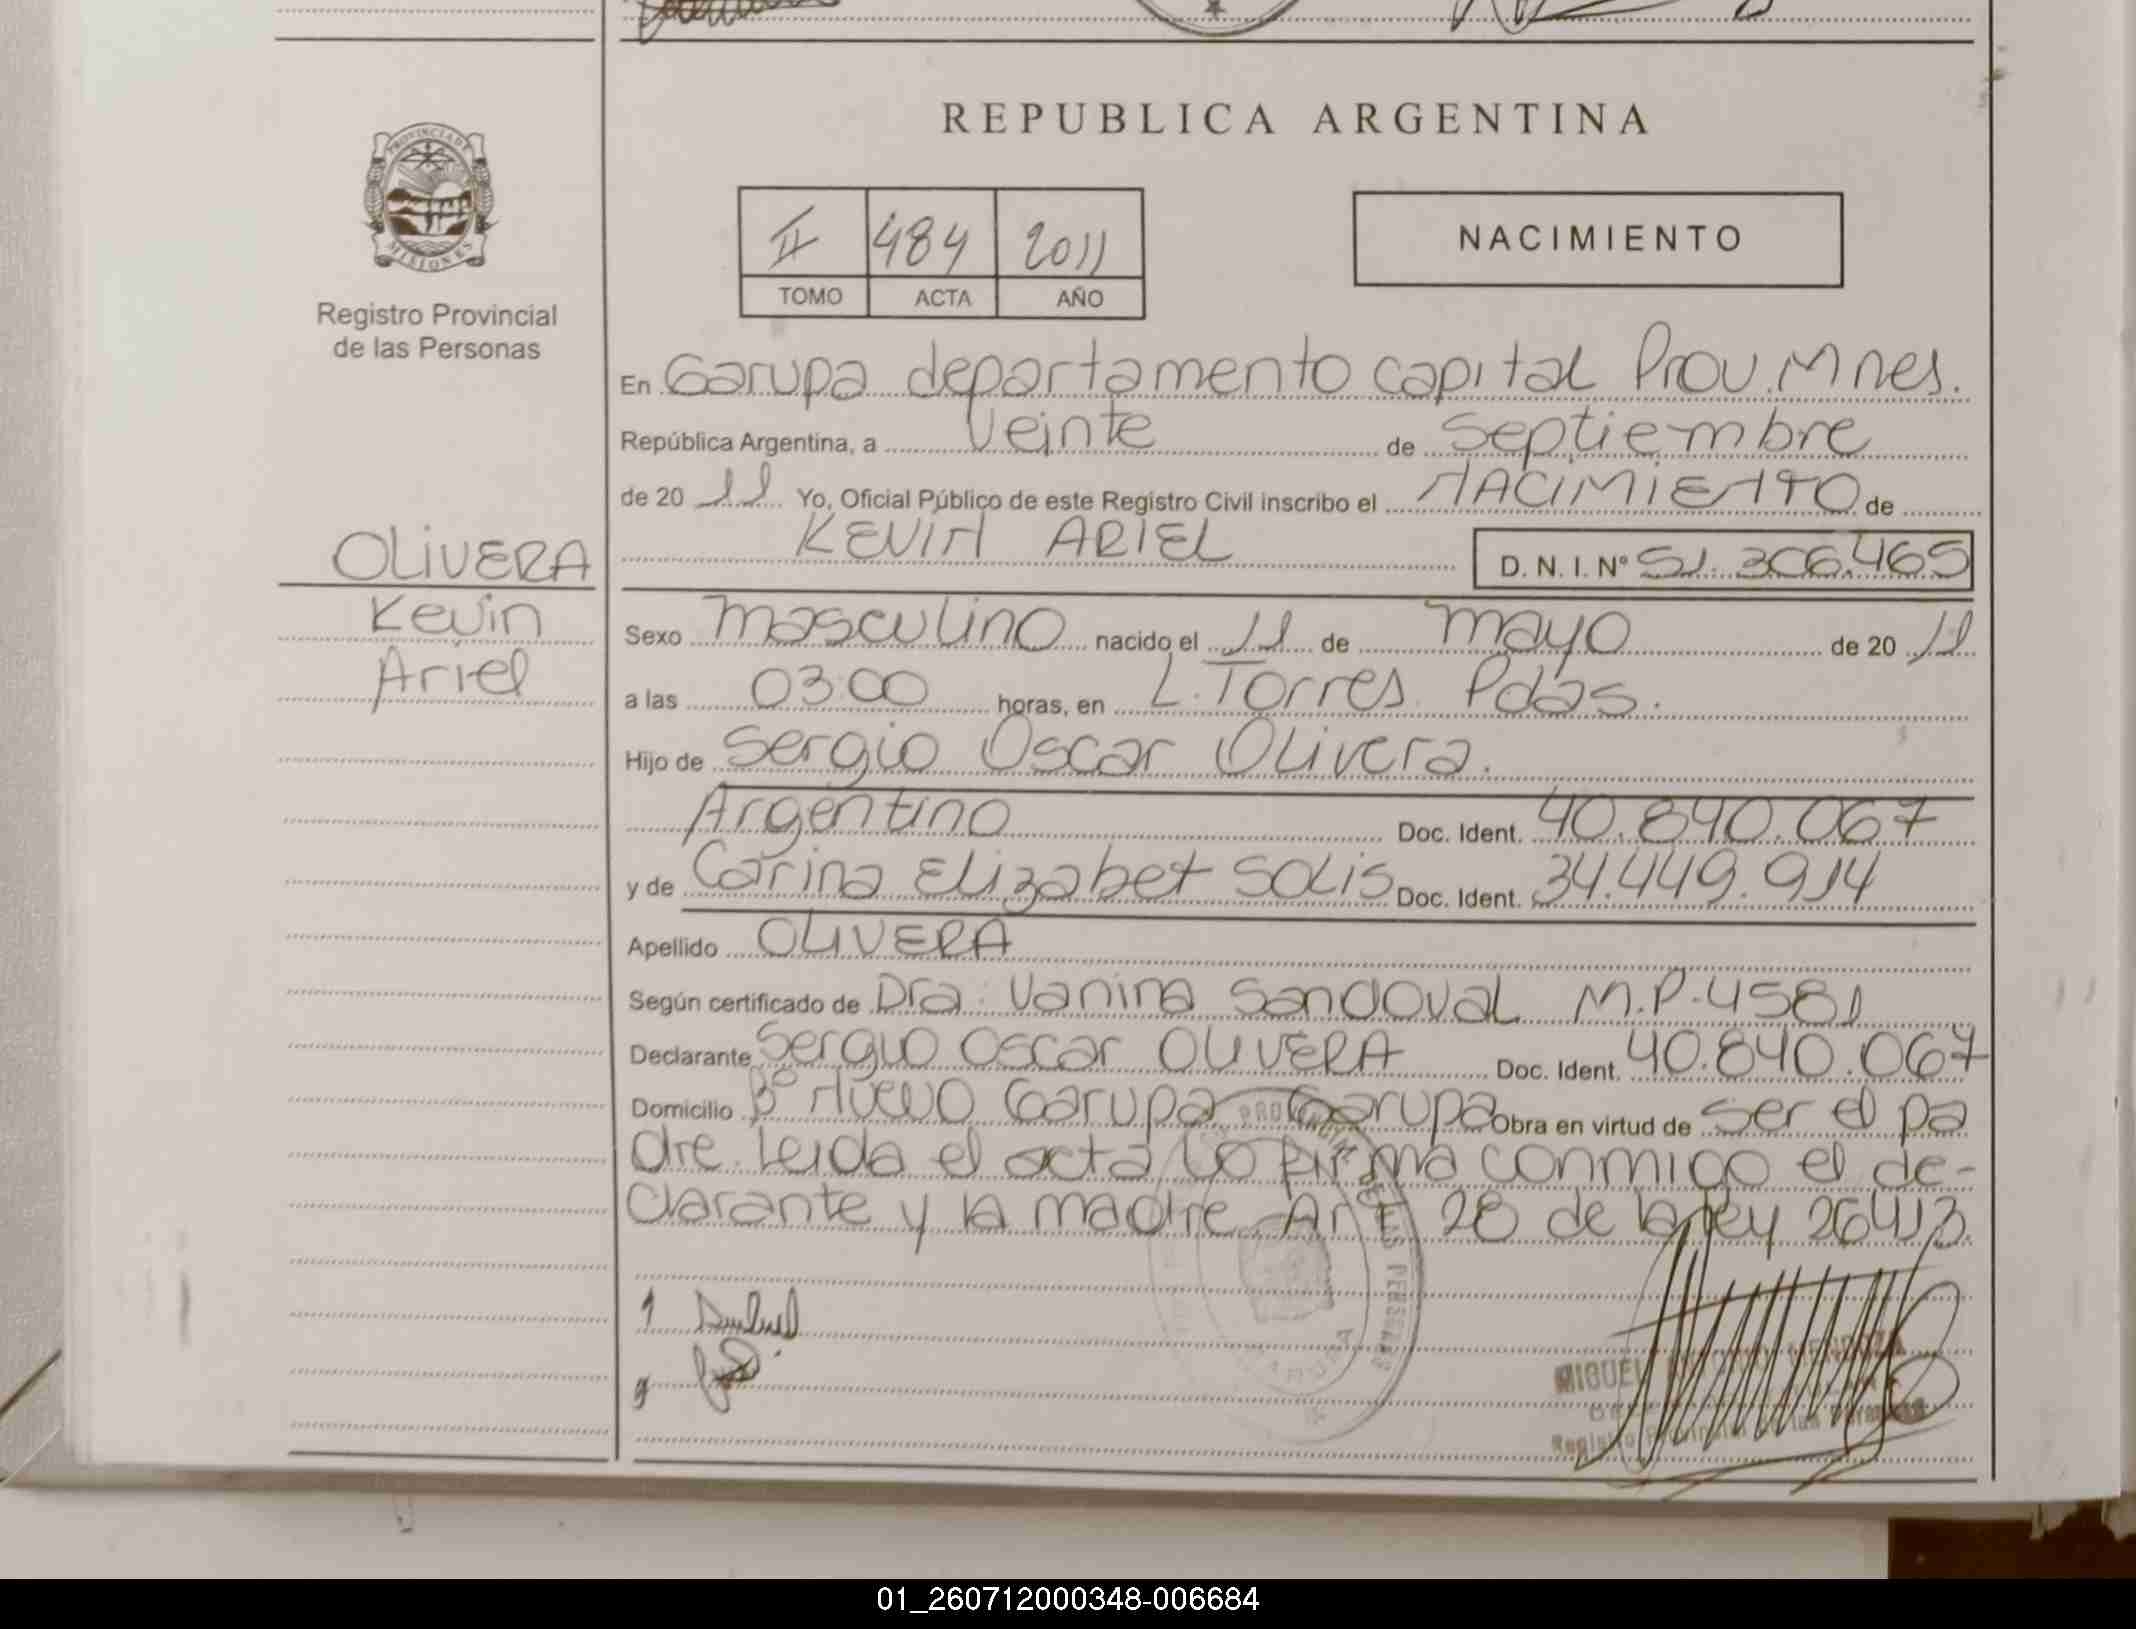 REPUBLICA ARGENTINA
PROVINCIA DE
MISIONES
Registro Provincial
de las Personas
II 484 2011
TOMO ACTA AÑO
NACIMIENTO
En Garupa departamento capital Prov. Mnes.
República Argentina, a veinte de septiembre
de 20 11 Yo, Oficial Público de este Registro Civil inscribo el NACIMIENTO de
KEVIN ARIEL D. N. I. Nº 51.306.465
OLIVERA
Kevin
Ariel
Sexo masculino nacido el 11 de mayo de 20 11
a las 03:00 horas, en L. Torres Pdas.
Hijo de Sergio Oscar Olivera.
Argentino Doc. Ident. 40.840.067
y de Carina Elizabet SOLIS Doc. Ident. 34.449.914
Apellido OLIVERA
Según certificado de Dra. Vanina Sandoval M.P. 4581
Declarante Sergio Oscar OLIVERA Doc. Ident. 40.840.067
Domicilio Bº Nuevo Garupa Garupa Obra en virtud de ser el pa
dre. Leida el acta lo firma conmigo el de-
clarante y la madre Art 28 de la ley 26413.
MIGUEL MENDOZA
Registro Provincial de las Personas
01_260712000348-006684